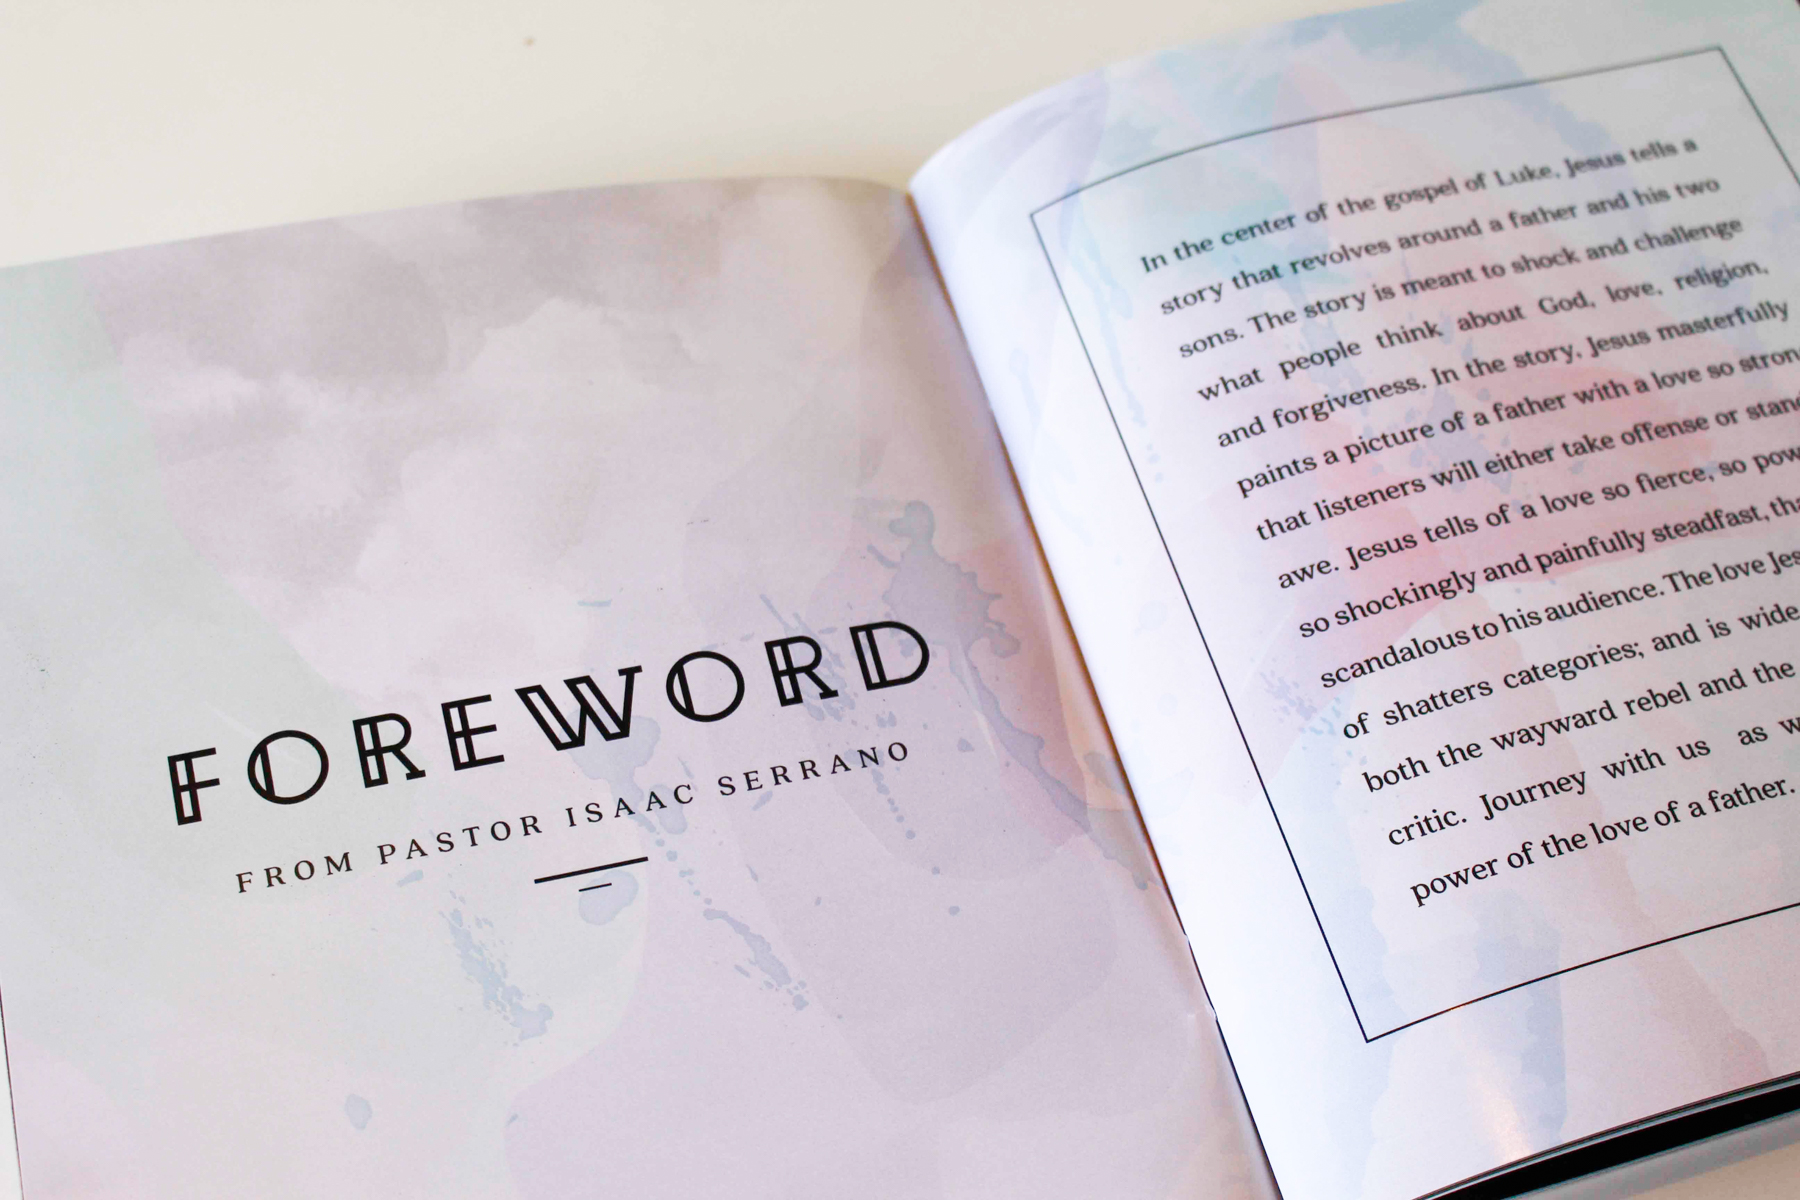 FOREWORD
FROM PASTOR ISAAC SERRANO
In the center of the gospel of Luke, Jesus tells a
story that revolves around a father and his two
sons. The story is meant to shock and challenge
what people think about God, love, religion,
and forgiveness. In the story, Jesus masterfully
paints a picture of a father with a love so stron
that listeners will either take offense or stand
awe. Jesus tells of a love so fierce, so pow
so shockingly and painfully steadfast, tha
scandalous to his audience. The love Jes
of shatters categories; and is wide
both the wayward rebel and the
critic. Journey with us as w
power of the love of a father.